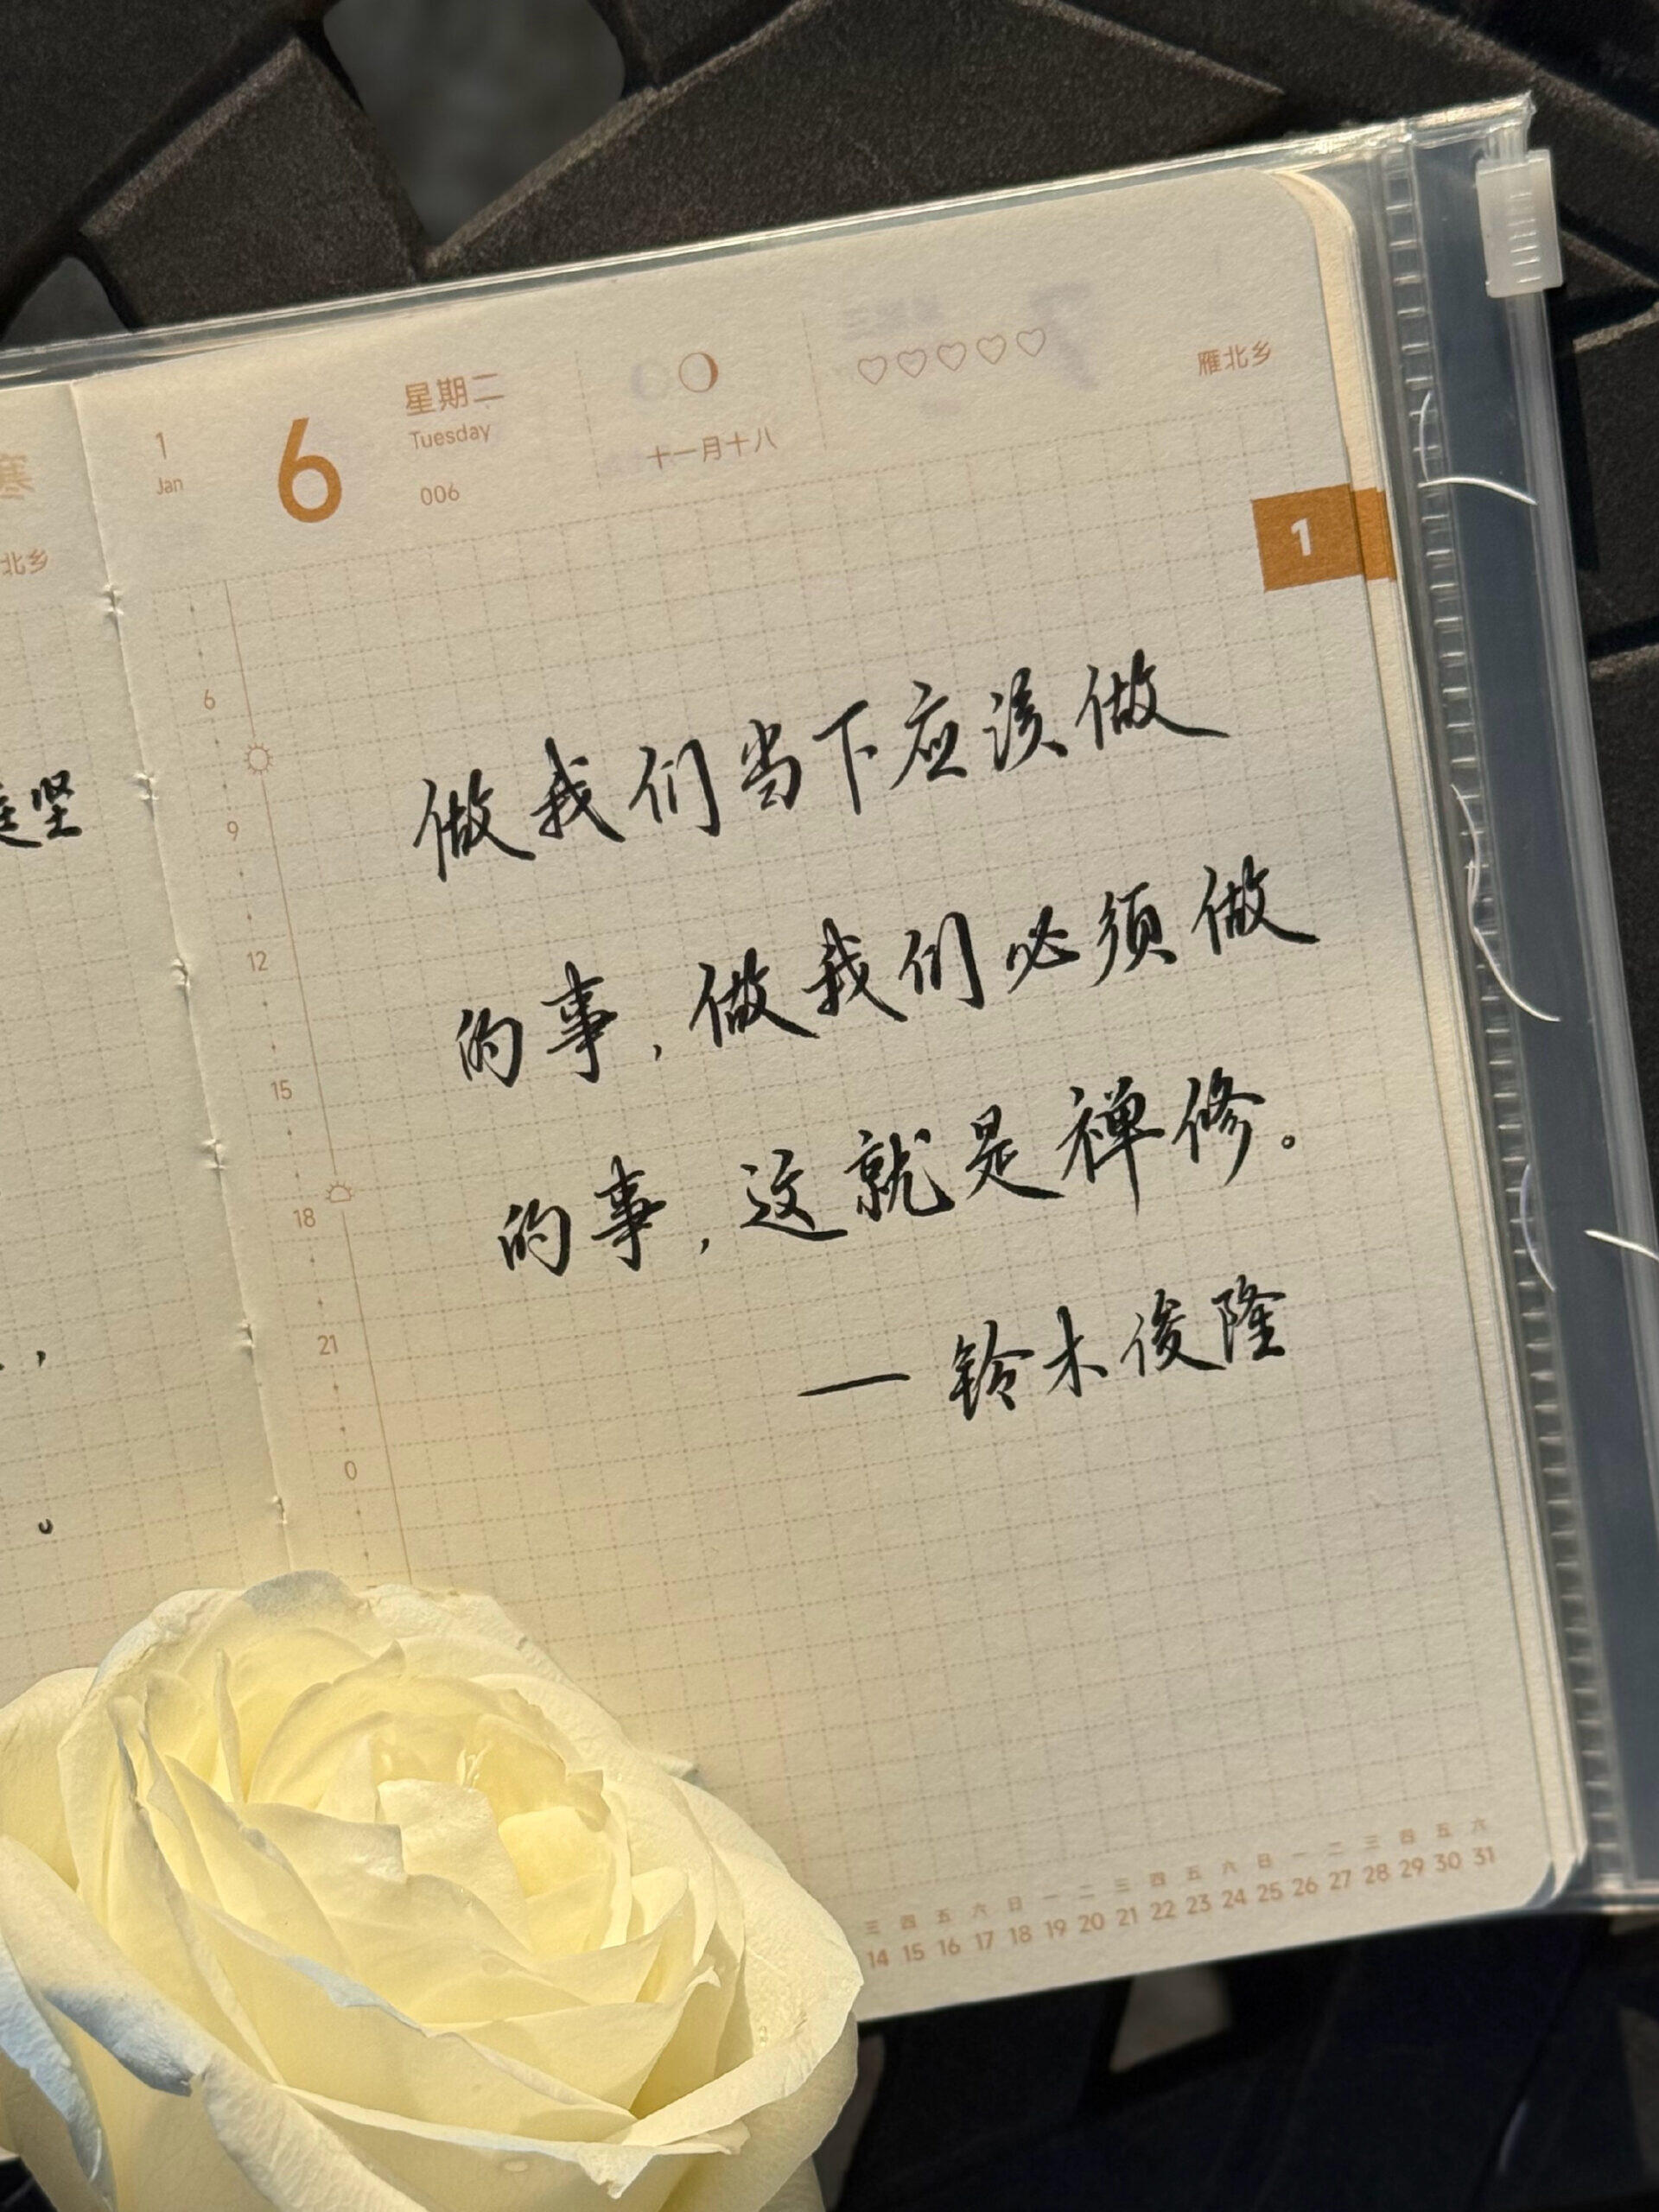 寒
北乡
坚
1
Jan
6
星期二
Tuesday
006
十一月十八
雁北乡
1
做我们当下应该做
的事，做我们必须做
的事，这就是禅修。
— 铃木俊隆
6
9
12
15
18
21
0
三 四 五 六 日 一 二 三 四 五 六 日 一 二 三 四 五 六
14 15 16 17 18 19 20 21 22 23 24 25 26 27 28 29 30 31